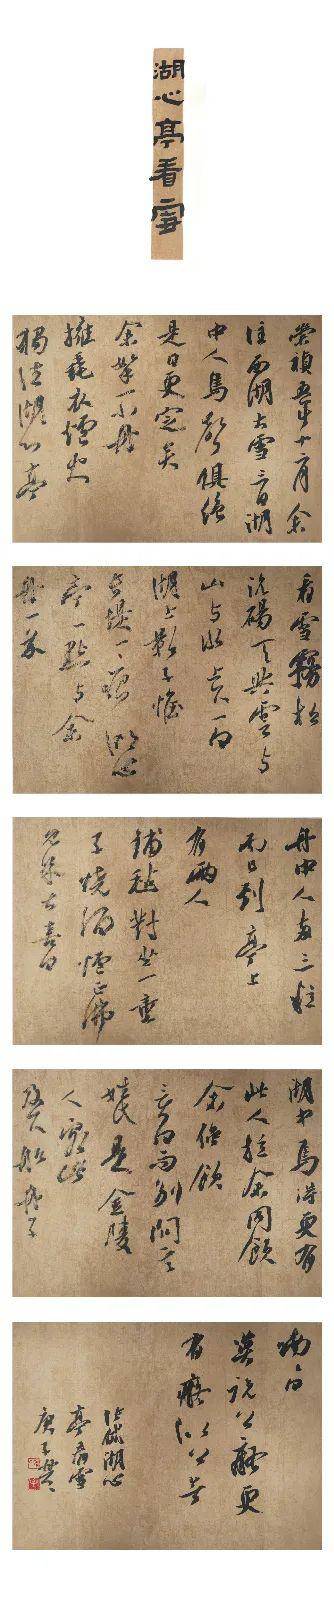 湖心亭看雪
崇禎五年十二月余
住西湖大雪三日湖
中人鳥聲俱絕
是日更定矣
余拏一小舟
擁毳衣爐火
獨往湖心亭
看雪霧凇
沆碭天與雲與
山與水上下一白
湖上影子惟
長堤一痕湖心
亭一點與余
舟一芥
舟中人兩三粒
而已到亭上
有兩人
鋪氈對坐一童
子燒酒爐正沸
見余大喜曰
湖中焉得更有
此人拉余同飲
余強飲
三白而別問其
姓氏是金陵
人客此
及下船舟子
喃喃曰
莫說相公癡更
有癡似相公者
張岱湖心
亭看雪
庚子